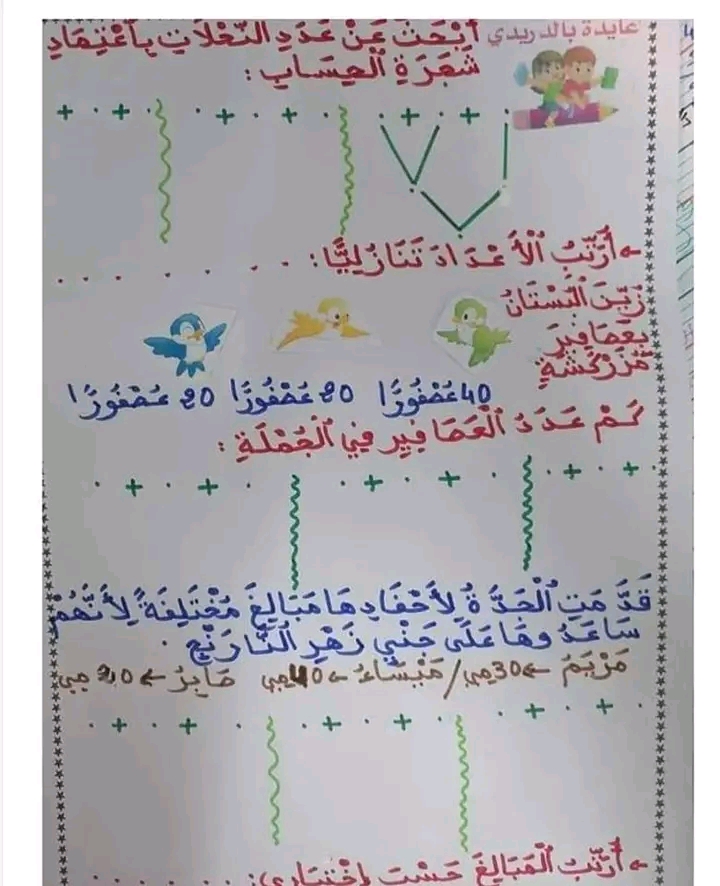 عايدة بالدريدي
أَبْحَثُ عَنْ عَدَدِ النَّحْلَاتِ بِاعْتِمَادِ
شَجَرَةِ الْحِسَابِ :
. + . + .
. + . + .
. + . + .
← أُرَتِّبُ الْأَعْدَادَ تَنَازُلِيًّا : . . . . . . . .
زَيَّنَ الْبُسْتَانُ
بِعَصَافِيرَ
مُزَرْكَشَةٍ
40 عُصْفُورًا 20 عُصْفُورًا 20 عُصْفُورًا
كَمْ عَدَدُ الْعَصَافِيرِ فِي الْجُمْلَةِ :
. + . + .
. + . + .
. + . + .
قَدَّمَتِ الْجَدَّةُ لِأَحْفَادِهَا مَبَالِغَ مُخْتَلِفَةً لِأَنَّهُمْ
سَاعَدُوهَا عَلَى جَنْيِ زَهْرِ النَّارَنْجِ .
مَرْيَمُ ← 30 مي / مَيْسَاءُ ← 40 مي صَابِرُ ← 20 مي
. + . + .
. + . + .
. + . + .
← أُرَتِّبُ الْمَبَالِغَ حَسْبَ اخْتِيَارِي : . . . . . . .